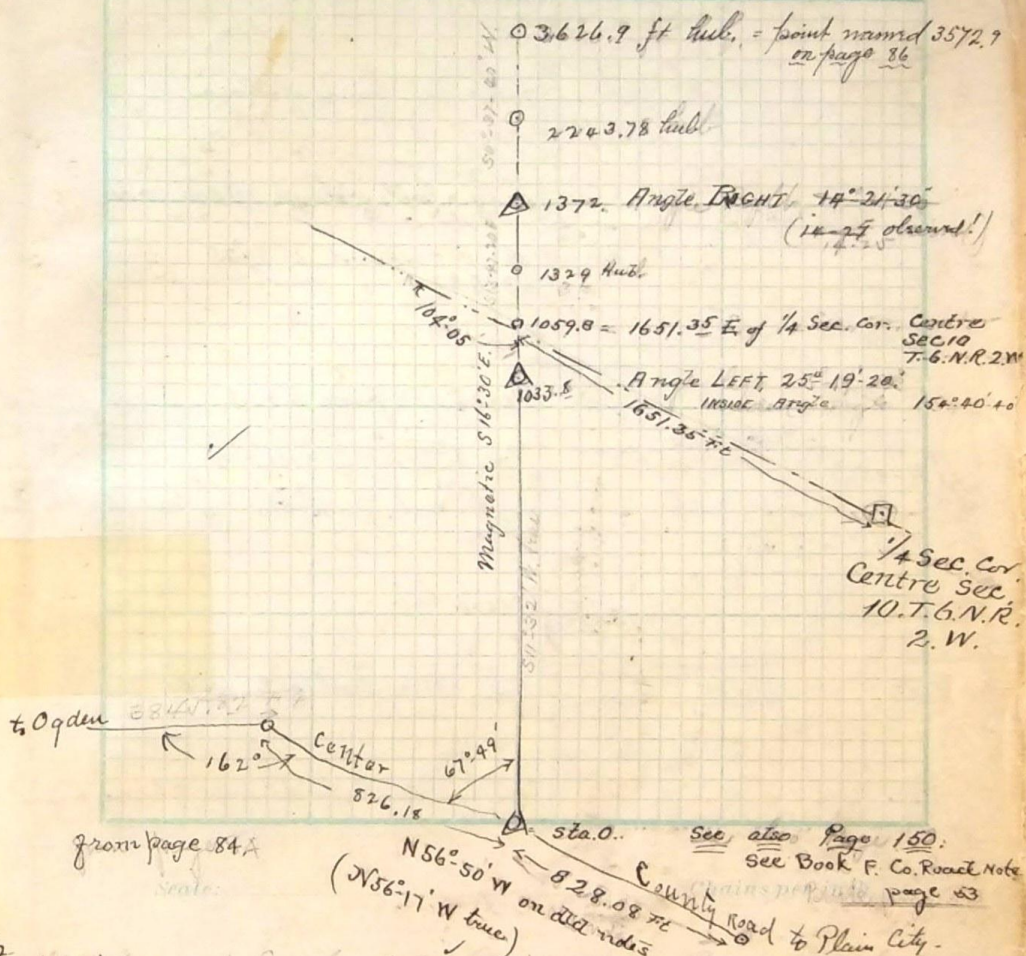 3626.9 ft hub. = point named 3572.9
on page 86
2243.78 hub
1372. Angle RIGHT 14°-21'-30"
(14-25 observed!)
14-25
1329 Hub.
1059.8 = 1651.35 E of 1/4 Sec. Cor. Centre
Sec 10
T.6.N.R.2.W
104°-05
1033.8
Angle LEFT. 25°-19'-20"
INSIDE Angle 154°40'40
1651.35 Ft
Magnetic S16°-30'E.
1/4 Sec. Cor.
Centre Sec.
10.T.6.N.R.
2.W.
to Ogden
162°
Center
67°-49'
826.18
from page 84
sta.0..
See also Page 150.
See Book F. Co. Road Note
page 53
N56°-50'W on old notes
(N56°-17'W true)
828.08 Ft
County Road to Plain City.
Scale:
Chains per inch